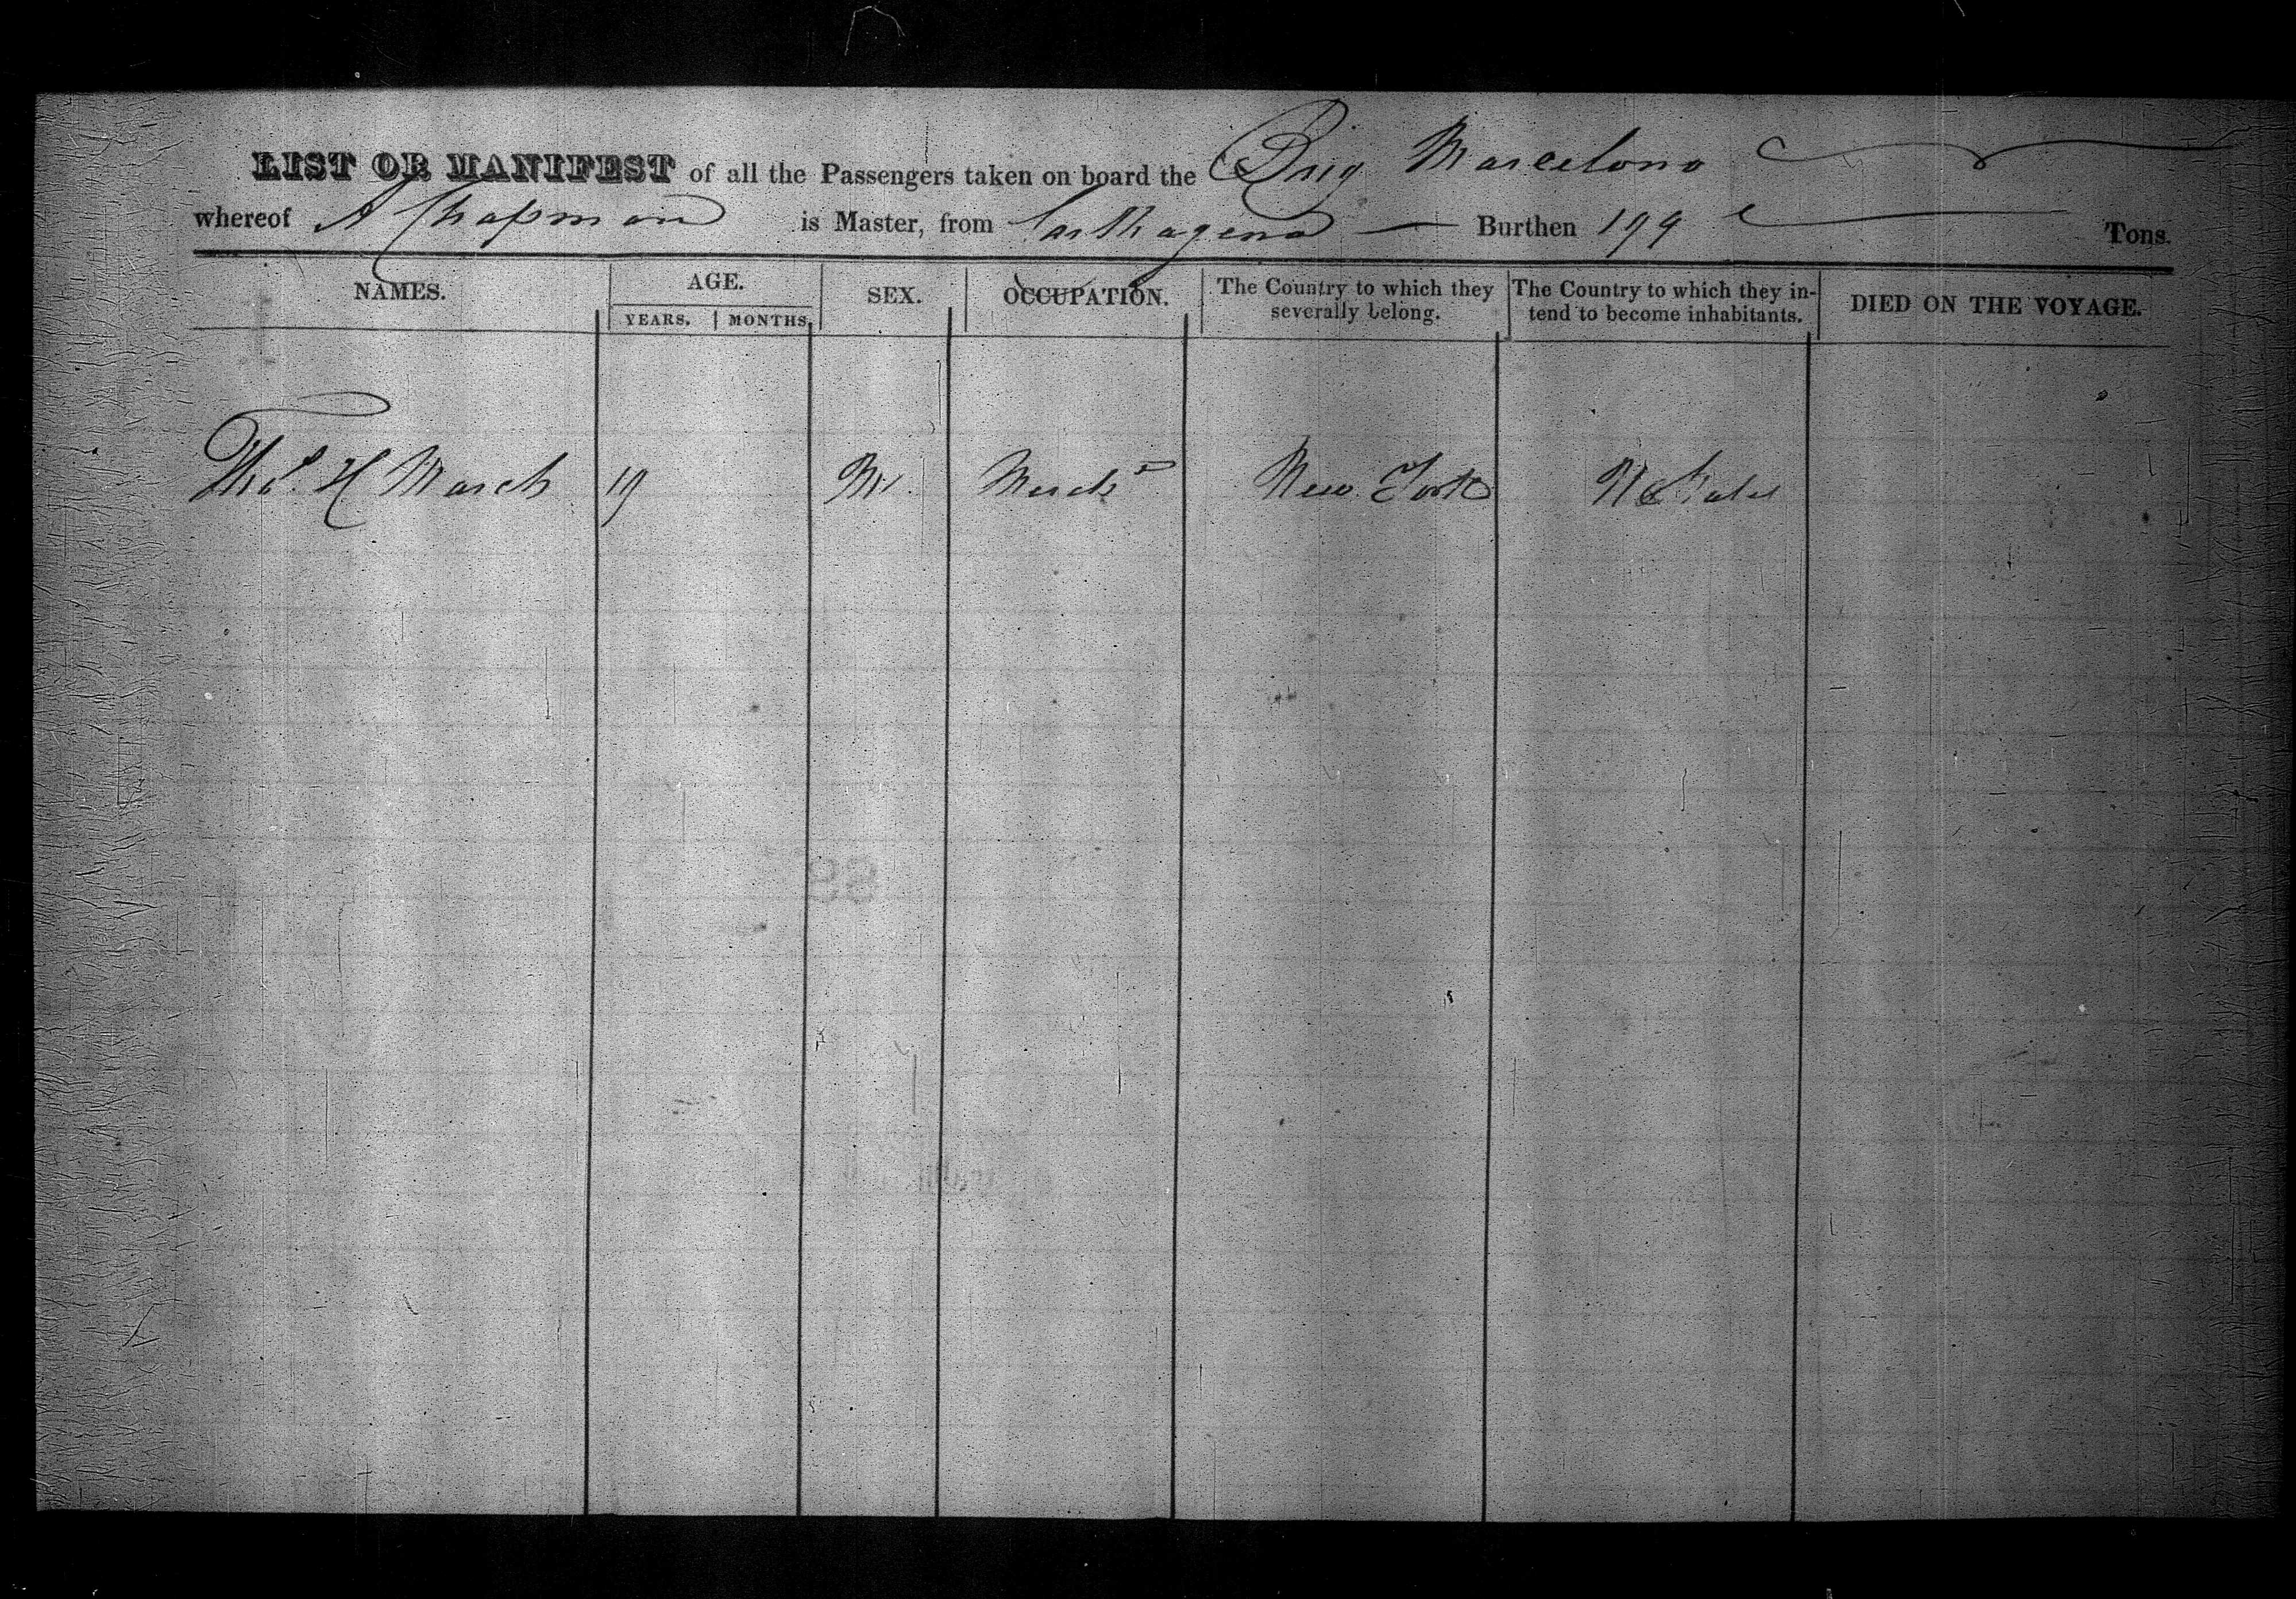 LIST OR MANIFEST of all the Passengers taken on board the Brig Marcelona
whereof A Chapman is Master, from Carthagena Burthen 199 Tons.
NAMES. AGE. SEX. OCCUPATION. The Country to which they severally belong. The Country to which they in-tend to become inhabitants. DIED ON THE VOYAGE.
YEARS. MONTHS.
Thos. H March 19 M. New York